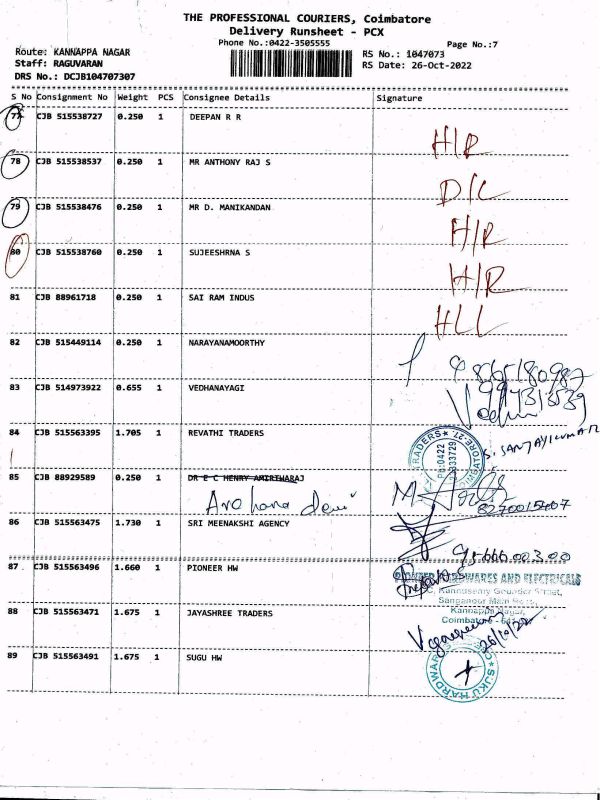 THE PROFESSIONAL COURIERS, Coimbatore
Delivery Runsheet - PCX
Phone No.:0422-3505555
Page No.:7
Route: KANNAPPA NAGAR
RS No.: 1047073
Staff: RAGUVARAN
RS Date: 26-Oct-2022
DRS No.: DCJB104707307
S No Consignment No Weight PCS Consignee Details Signature
77 CJB 515538727 0.250 1 DEEPAN R R
H/R
78 CJB 515538537 0.250 1 MR ANTHONY RAJ S
D/L
79 CJB 515538476 0.250 1 MR D. MANIKANDAN
H/R
80 CJB 515538760 0.250 1 SUJEESHRNA S
H/R
81 CJB 88961718 0.250 1 SAI RAM INDUS
HLL
82 CJB 515449114 0.250 1 NARAYANAMOORTHY
83 CJB 514973922 0.655 1 VEDHANAYAGI
84 CJB 515563395 1.705 1 REVATHI TRADERS
TRADERS
S. SANJAYKUMAR
85 CJB 88929589 0.250 1 DR E C HENRY AMIRTHARAJ
8270015407
86 CJB 515563475 1.730 1 SRI MEENAKSHI AGENCY
87 CJB 515563496 1.660 1 PIONEER HW
PIONEER HARDWARES AND ELECTRICALS
Kannusamy Gounder Street,
Sanganoor Main Road,
Kannappa Nagar,
Coimbatore
88 CJB 515563471 1.675 1 JAYASHREE TRADERS
26/10/22
89 CJB 515563491 1.675 1 SUGU HW